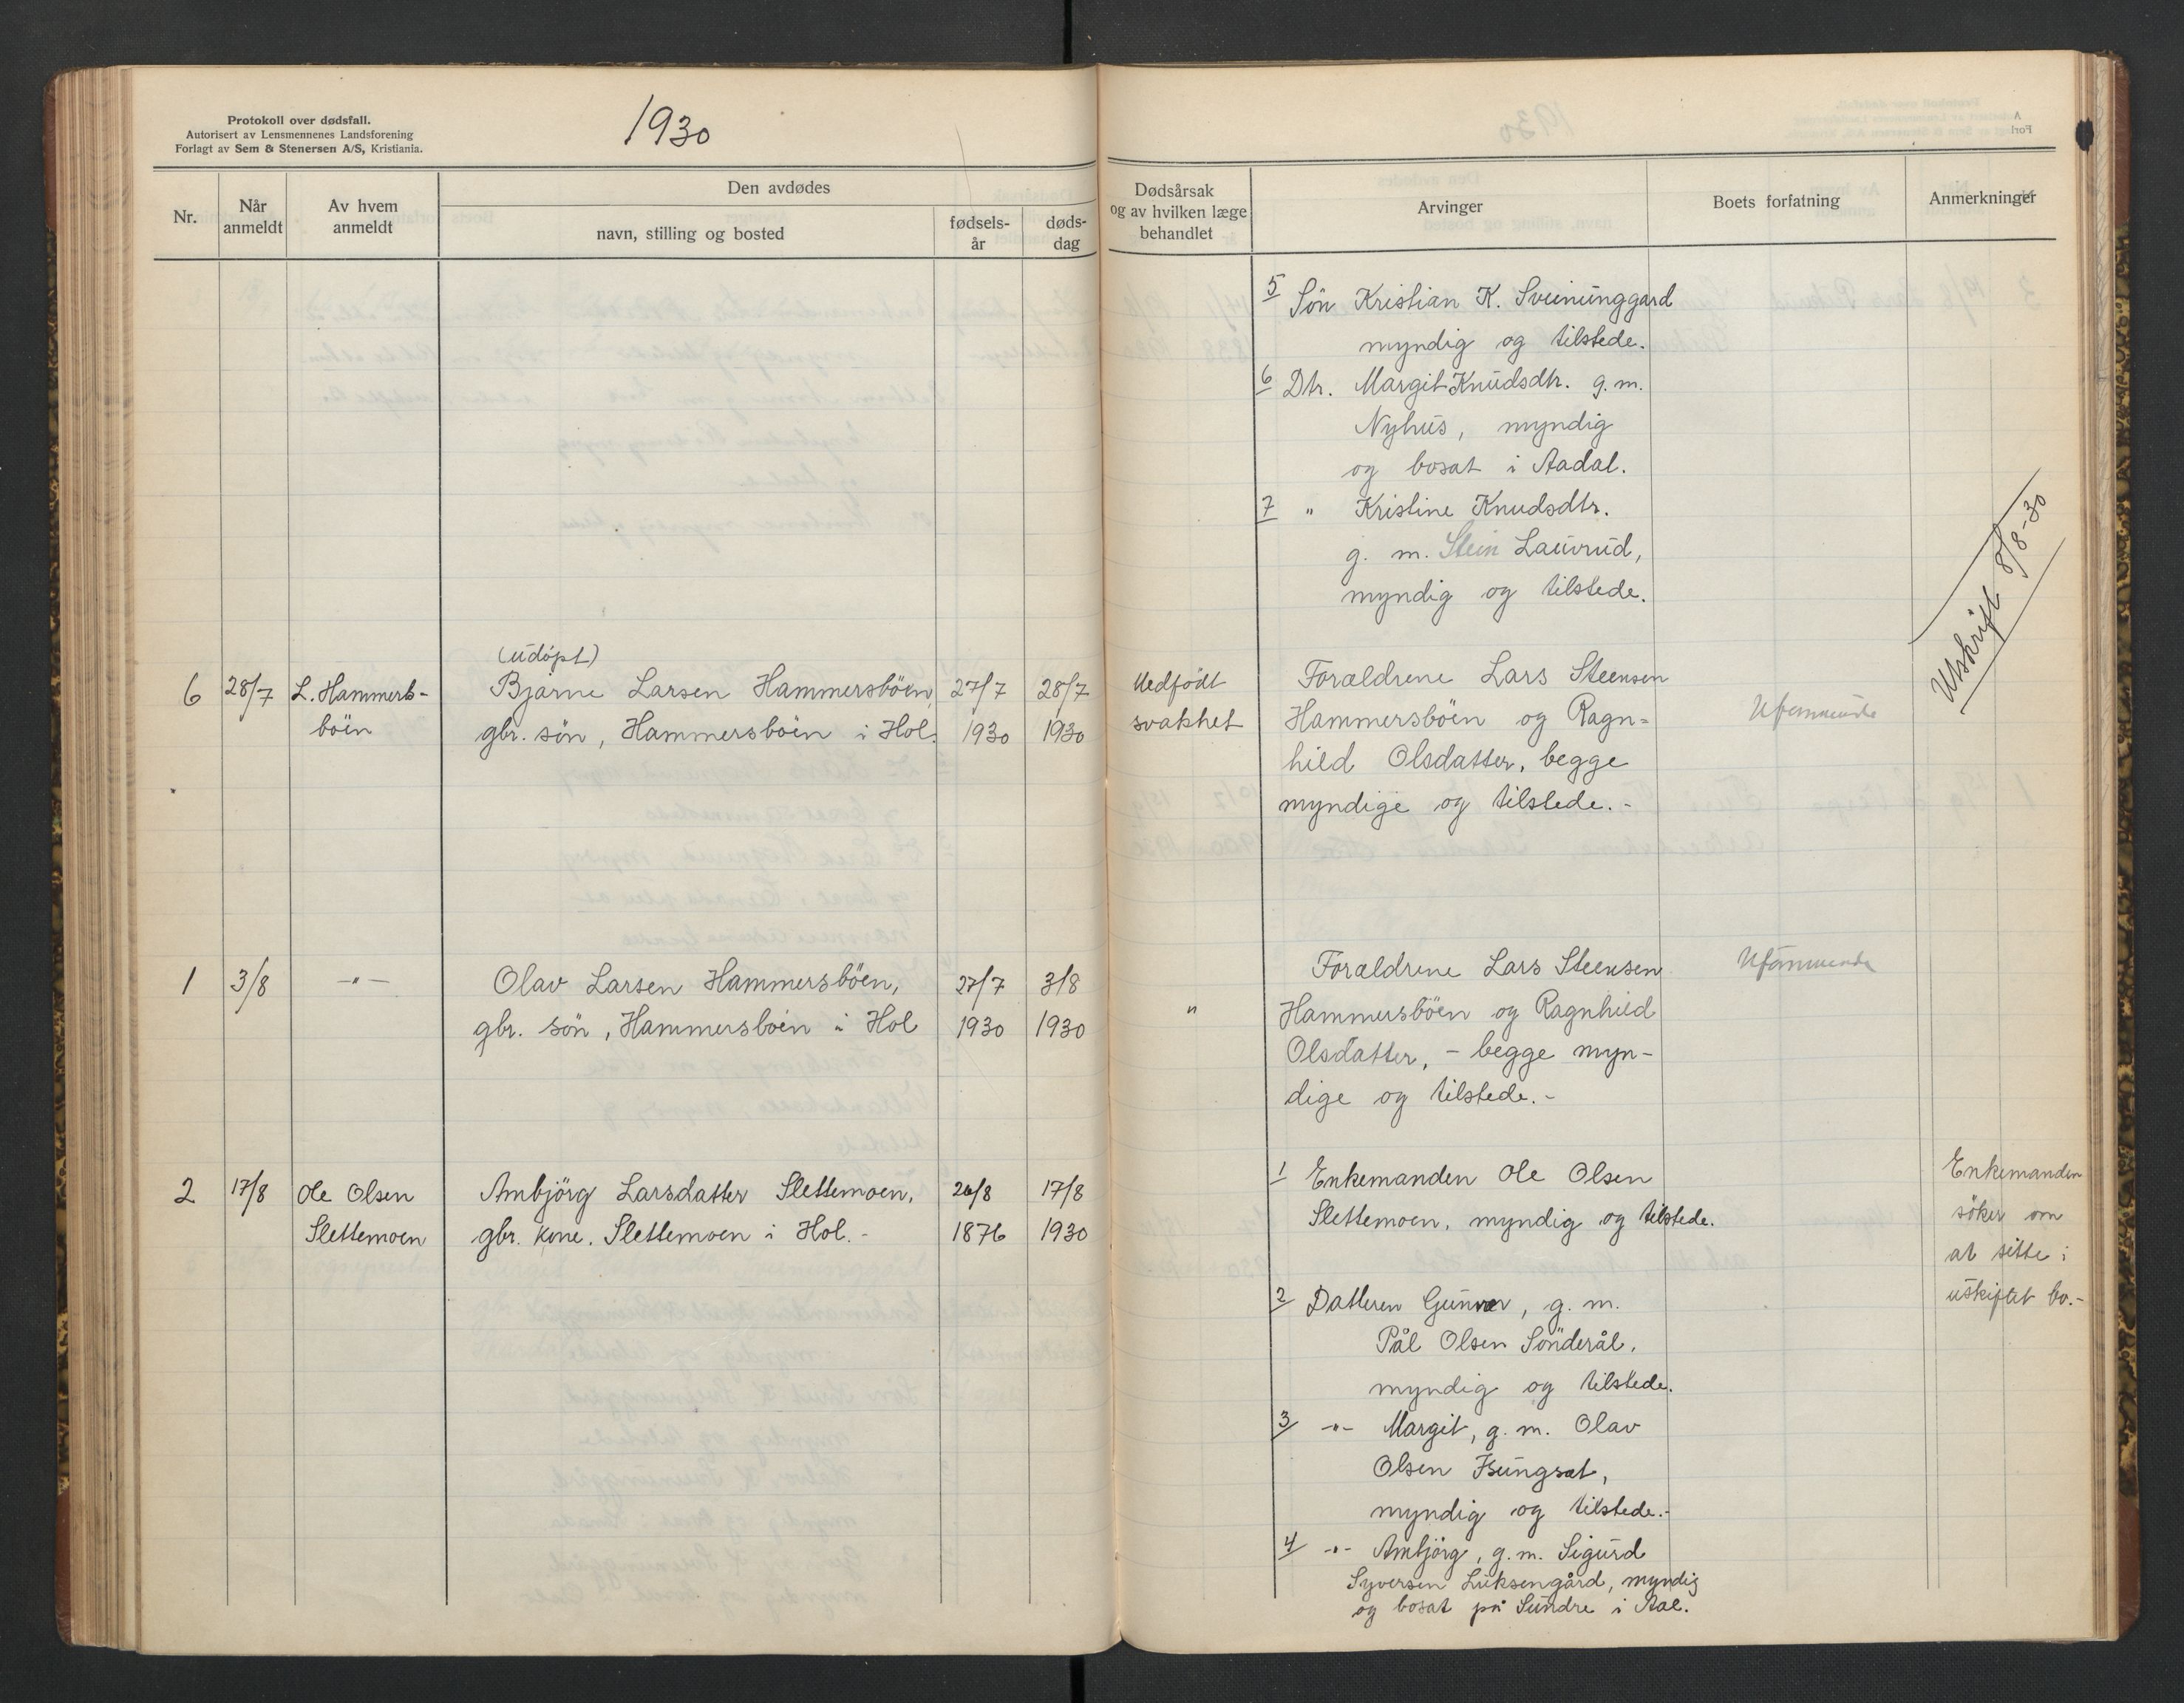 Protokoll over dødsfall.
Autorisert av Lensmennenes Landsforening
Forlagt av Sem & Stenersen A/S, Kristiania.
1930
Nr.
Når anmeldt
Av hvem anmeldt
Den avdødes
navn, stilling og bosted
fødsels-år
døds-dag
Dødsårsak og av hvilken læge behandlet
Arvinger
Boets forfatning
Anmerkninger
5 Sön Kristian K. Sveinunggard
myndig og tilstede.
6 Dtr. Margit Knudsdtr. g.m.
Nyhus, myndig
og bosat i Aadal.
7 " Kristine Knudsdtr.
g. m. Stein Laurud,
myndig og tilstede.
Utskrift 8/8-30
(udöpt)
6 28/7 L. Hammersb- Bjarne Larsen Hammersböen, 27/7 28/7 Medfödt
böen gbr. sön, Hammersböen i Hol. 1930 1930 svakhet
Forældrene Lars Steensen
Hammersböen og Ragn-
hild Olsdatter, begge
myndige og tilstede.-
Uformuende
1 3/8 -"- Olav Larsen Hammersböen, 27/7 3/8
gbr. sön, Hammersböen i Hol 1930 1930 "
Forældrene Lars Steensen
Hammersböen og Ragnhild
Olsdatter, - begge myn-
dige og tilstede.-
Uformuende
2 17/8 Ole Olsen Ambjörg Larsdatter Slettemoen, 26/8 17/8
Slettemoen gbr. kone. Slettemoen i Hol.- 1876 1930
1 Enkemanden Ole Olsen
Slettemoen, myndig og tilstede.
2 Datteren Gunvor, g. m.
Pål Olsen Sönderål,
myndig og tilstede.
3 -"- Margit, g. m. Olav
Olsen
myndig og tilstede.-
4 -"- Ambjörg, g. m. Sigurd
Syversen Luksengård, myndig
og bosat på Sundre i Aal.
Enkemanden
söker om
at sitte i
uskiftet bo.-